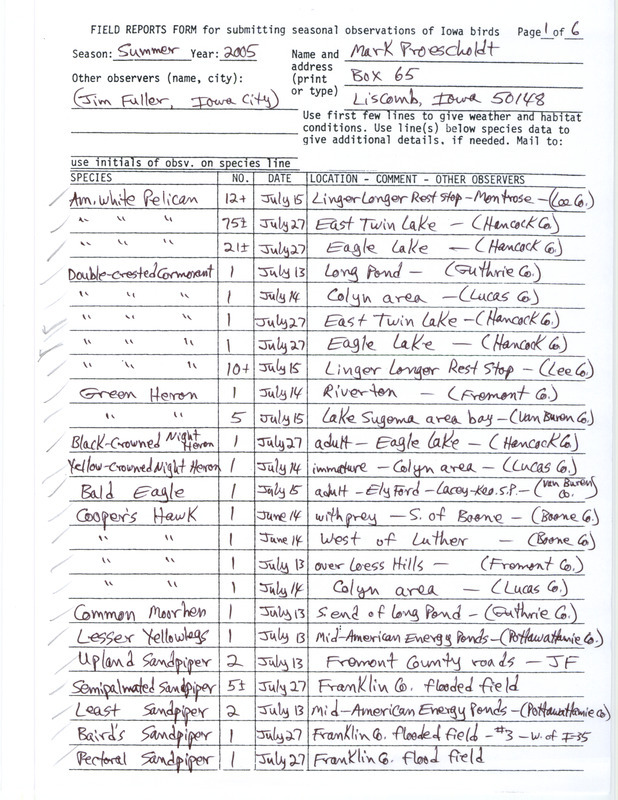 FIELD REPORTS FORM for submitting seasonal observations of Iowa birds Page 1 of 6
Season: Summer Year: 2005
Name and address (print or type) Mark Proescholdt
Box 65
Liscomb, Iowa 50148
Other observers (name, city):
(Jim Fuller, Iowa City)
Use first few lines to give weather and habitat
conditions. Use line(s) below species data to
give additional details, if needed. Mail to:
use initials of obsv. on species line
SPECIES NO. DATE LOCATION - COMMENT - OTHER OBSERVERS
Am. White Pelican 12+ July 15 Linger Longer Rest Stop - Montrose - (Lee Co.)
" " " 75± July 27 East Twin Lake - (Hancock Co)
" " " 21± July 27 Eagle Lake - (Hancock Co)
Double-crested Cormorant 1 July 13 Long Pond - (Guthrie Co.)
" " " 1 July 14 Colyn area - (Lucas Co)
" " " 1 July 27 East Twin Lake - (Hancock Co.)
" " " 1 July 27 Eagle Lake - (Hancock Co.)
" " " 10+ July 15 Linger Longer Rest Stop - (Lee Co.)
Green Heron 1 July 14 Riverton - (Fremont Co.)
" " 5 July 15 Lake Sugema area bay - (Van Buren Co.)
Black-Crowned Night Heron 1 July 27 adult - Eagle Lake - (Hancock Co)
Yellow-Crowned Night Heron 1 July 14 immature - Colyn area - (Lucas Co.)
Bald Eagle 1 July 15 adult - Ely Ford - Lacey-Keo. S.P. - (Van Buren Co.)
Cooper's Hawk 1 June 14 with prey - S. of Boone - (Boone Co.)
" " 1 June 14 West of Luther - (Boone Co)
" " 1 July 13 over Loess Hills - (Fremont Co.)
" " 1 July 14 Colyn area - (Lucas Co.)
Common Moorhen 1 July 13 S. end of Long Pond - (Guthrie Co.)
Lesser Yellowlegs 1 July 13 Mid-American Energy Ponds - (Pottawattamie Co.)
Upland Sandpiper 2 July 13 Fremont County roads - JF
Semipalmated Sandpiper 5± July 27 Franklin Co. flooded field
Least Sandpiper 2 July 13 Mid-American Energy Ponds - (Pottawattamie Co)
Baird's Sandpiper 1 July 27 Franklin Co. flooded field - #3 - W. of I-35
Pectoral Sandpiper 1 July 27 Franklin Co. flood field